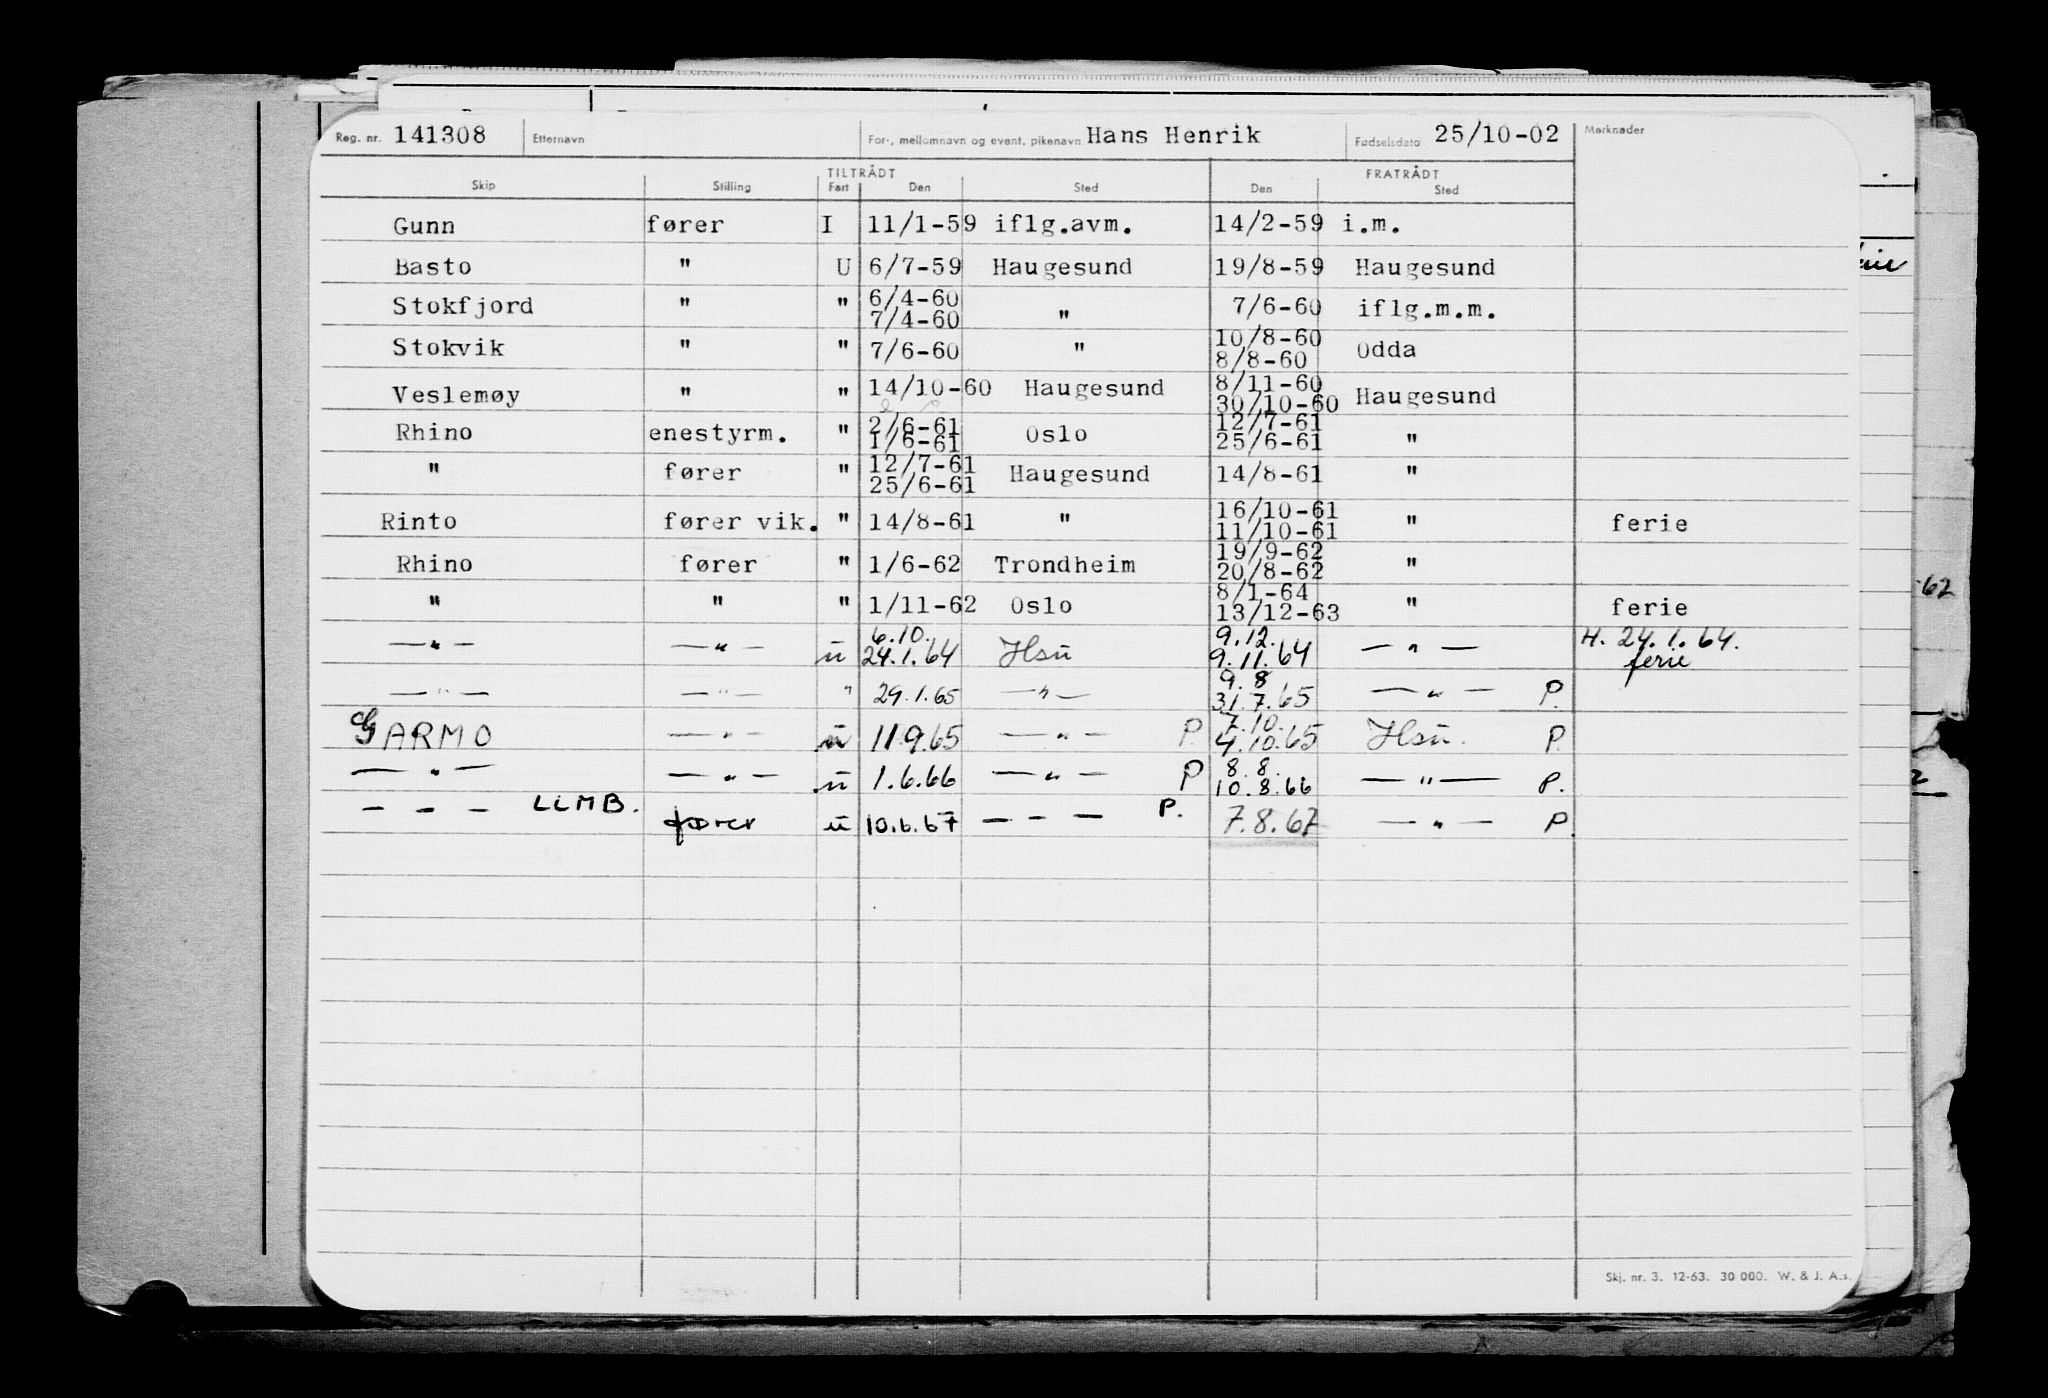 Reg. nr. 141308 Etternavn For-, mellomnavn og event. pikenavn Hans Henrik Fødselsdato 25/10-02 Merknader
TILTRÅDT FRATRÅDT
Skip Stilling Fart Den Sted Den Sted
Gunn fører I 11/1-59 iflg.avm. 14/2-59 i.m.
Basto " U 6/7-59 Haugesund 19/8-59 Haugesund
Stokfjord " " 6/4-60 7/4-60 " 7/6-60 iflg.m.m.
Stokvik " " 7/6-60 " 10/8-60 8/8-60 Odda
Veslemøy " " 14/10-60 Haugesund 8/11-60 30/10-60 Haugesund
Rhino enestyrm. " 2/6-61 1/6-61 Oslo 12/7-61 25/6-61 "
" fører " 12/7-61 25/6-61 Haugesund 14/8-61 "
Rinto fører vik. " 14/8-61 " 16/10-61 11/10-61 " ferie
Rhino fører " 1/6-62 Trondheim 19/9-62 20/8-62 "
" " " 1/11-62 Oslo 8/1-64 13/12-63 " ferie
—"— —"— ū 6.10. 24.1.64 Hsū 9.12. 9.11.64 —"— H. 24.1.64. ferie
—"— —"— " 29.1.65 —"— 9.8 31.7.65 —"— P.
GARMO —"— ū 11.9.65 —"— P. 7.10. 4.10.65 Hsū. P.
—"— —"— ū 1.6.66 —"— P 8.8. 10.8.66 —"— P.
— — — LLMB. fører ū 10.6.67 — — — P. 7.8.67 —"— P.
62
Skj. nr. 3. 12-63. 30 000. W. & J. A.s.